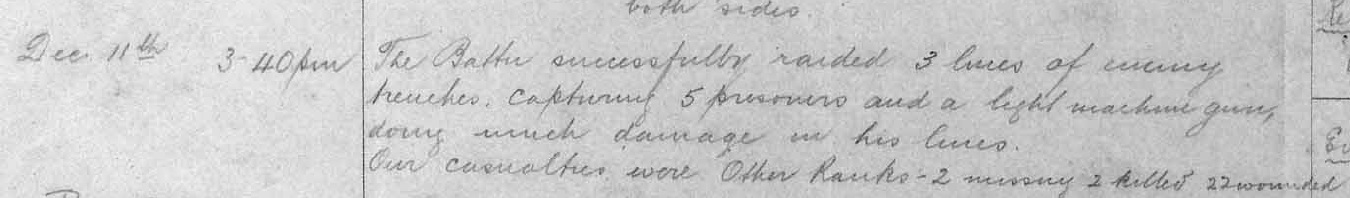 both sides.
Dec. 11th 3-40pm The Battn successfully raided 3 lines of enemy
trenches. Capturing 5 prisoners and a light machine gun,
doing much damage in his lines.
Our casualties were Other Ranks - 2 missing 2 killed 22 wounded